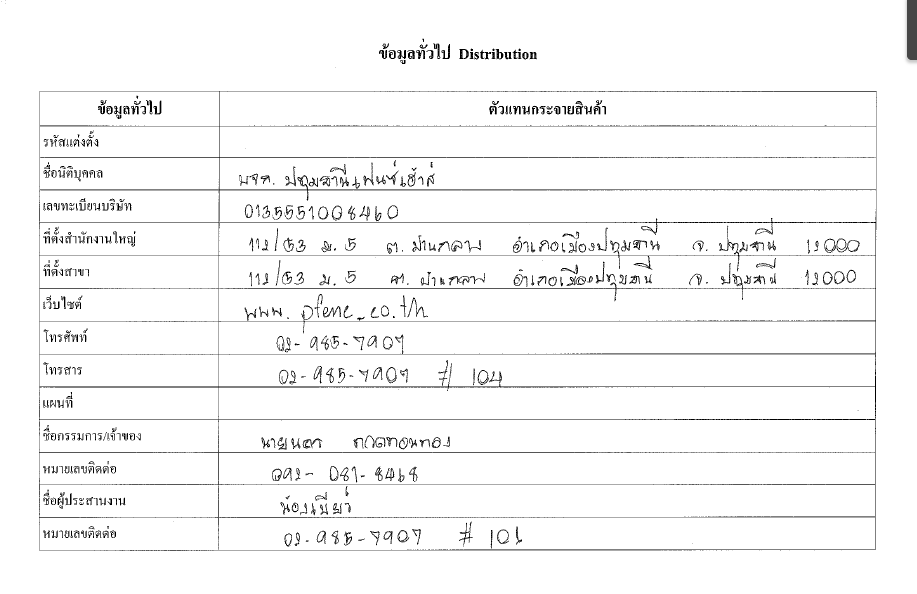 ข้อมูลทั่วไป Distribution
ข้อมูลทั่วไป ตัวแทนกระจายสินค้า
รหัสแต่งตั้ง
ชื่อนิติบุคคล บจก. ปทุมธานีเฟนซ์เฮ้าส์
เลขทะเบียนบริษัท 0135551008460
ที่ตั้งสำนักงานใหญ่ 112/53 ม. 5 ต. บ้านกลาง อำเภอเมืองปทุมธานี จ. ปทุมธานี 12000
ที่ตั้งสาขา 112/53 ม. 5 ต. บ้านกลาง อำเภอเมืองปทุมธานี จ. ปทุมธานี 12000
เว็บไซต์ www. pfenc_co.t/h
โทรศัพท์ 02-985-7907
โทรสาร 02-985-7907 # 104
แผนที่
ชื่อกรรมการ/เจ้าของ
หมายเลขติดต่อ 092- 081- 8468
ชื่อผู้ประสานงาน
หมายเลขติดต่อ 02-985-7907 # 101